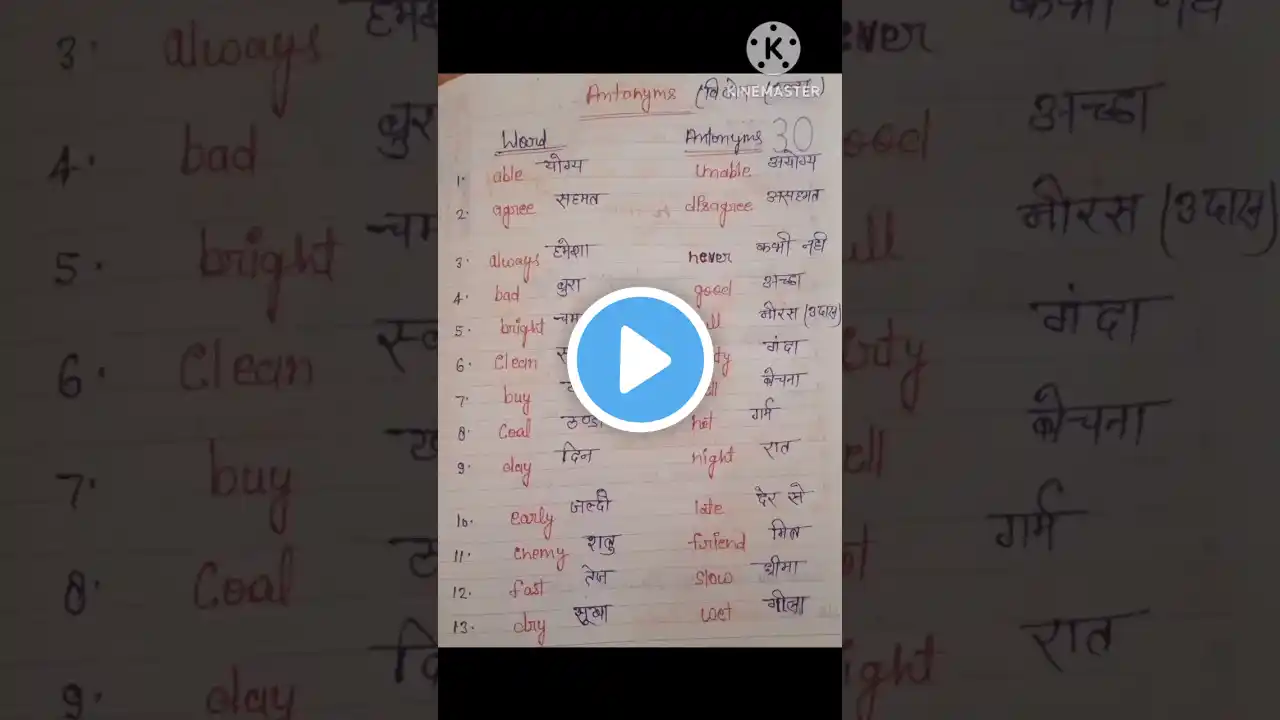 KINEMASTER
Antonyms
30
Word Antonyms
1. able योग्य unable अयोग्य
2. agree सहमत disagree असहमत
3. always हमेशा never कभी नही
4. bad बुरा good अच्छा
5. bright चम ll नीरस (उदास)
6. Clean गंदा
7. buy बेचना
8. Coal ठण्डा hot गर्म
9. day दिन night रात
10. early जल्दी late देर से
11. enemy शत्रु friend मित्र
12. fast तेज slow धीमा
13. dry सूखा wet गीला